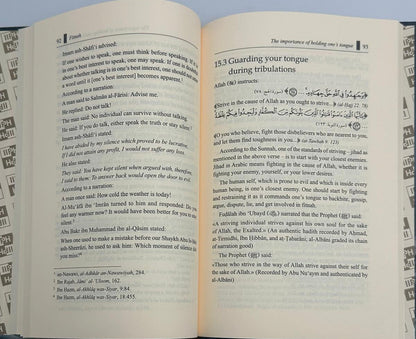 92 Fitnah
Imam ash-Shâfi'i advised:
If one wishes to speak, one must think before speaking. If it is
in one's best interest to speak, one may speak. If one is doubtful
about whether talking is in one's best interest, one should not speak
a word until it [one's best interest] becomes apparent.¹
According to a narration:
A man said to Salmân al-Fârisi: Advise me.
He replied: Do not talk.
The man said: No individual can survive without talking.
He said: If you do talk, either speak the truth or stay silent.²
Imam ash-Shâfi'i said:
I have abided by my silence which proved to be lucrative.
If I did not attain any profit, I would not suffer any loss.
He also stated:
They said: You have kept silent when argued with, therefore,
I said to them: To answer back would open the door to evil.
According to a narration:
A man once said: How cold the weather is today!
Al-Mu'âfâ ibn 'Imrân turned to him and responded: Do you
feel any warmer now? It would have been better for you to stay
silent.³
Abu Bakr ibn Muhammad ibn al-Qâsim stated:
When one used to make a mistake before our Shaykh Abu Is-hâq
ash-Sheerâzi, he used to ask him: Which moment of silence did
you miss?⁴
an-Nawawi, al-Adhkâr an-Nawawiyyah, 284.
² Ibn Rajab, Jâmi' al-'Uloom, 162.
³ Ibn Hazm, al-Akhlâq was-Siyar, 9.84.
⁴ Ibn Hazm, al-Akhlâq was-Siyar, 18.455.
The importance of holding one's tongue 93
15.3 Guarding your tongue
during tribulations
Allah (ﷻ) instructs:
﴿وَجَٰهِدُوا۟ فِى ٱللَّهِ حَقَّ جِهَادِهِۦ ...﴾
(سورة الحج: ٧٨)
﴾Strive in the cause of Allah as you ought to strive...﴿
(al-Ḥajj 22: 78)
﴾O you who believe, fight those disbelievers who are nearest to you,
and let them find roughness in you...﴿ (at-Tawbah 9: 123)
According to the Sunnah, one of the hundreds of striving - jihad as
mentioned in the above verse - is to start with your closest enemies.
Jihad in Arabic means fighting in the cause of Allah, whether it is
fighting your enemy, yourself, or your lower desires.
The human self, which is prone to evil and which is inside every
human being, is one's closest enemy. One should start by fighting
and restraining it as it commands one's tongue to backbite, gossip,
argue, dispute, lie, and get involved in fitnah.
Fuḍâlah ibn 'Ubayd (رضي الله عنه) narrated that the Prophet (ﷺ) said:
«A striving individual strives against his own soul for the sake
of Allah, the Exalted.» (An authentic hadith recorded by Aḥmad,
at-Tirmidhi, Ibn Ḥibbân, and aṭ-Ṭabarâni; al-Albâni graded its chain
of narration good)
The Prophet (ﷺ) said:
«Those who strive in the way of Allah strive against their self for
the sake of Allah.» (Recorded by Abu Nu'aym and authenticated by
al-Albâni)